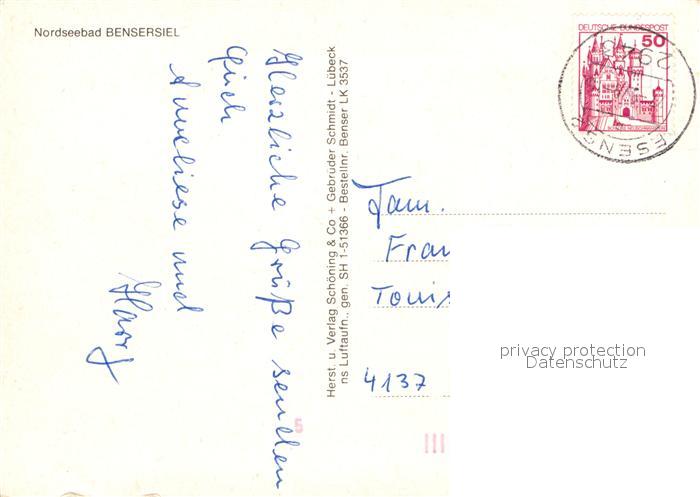 Nordseebad BENSERSIEL
Herzliche Grüße senden
Euch
Anneliese und
Harry
Herst. u. Verlag Schöning & Co + Gebrüder Schmidt - Lübeck
ns Luftaufn., gen. SH 1-51366 - Bestellnr. Benser LK 3537
DEUTSCHE BUNDESPOST
50
2943
ESENS
Fam.
Fran
Touis
4137
5
privacy protection
Datenschutz